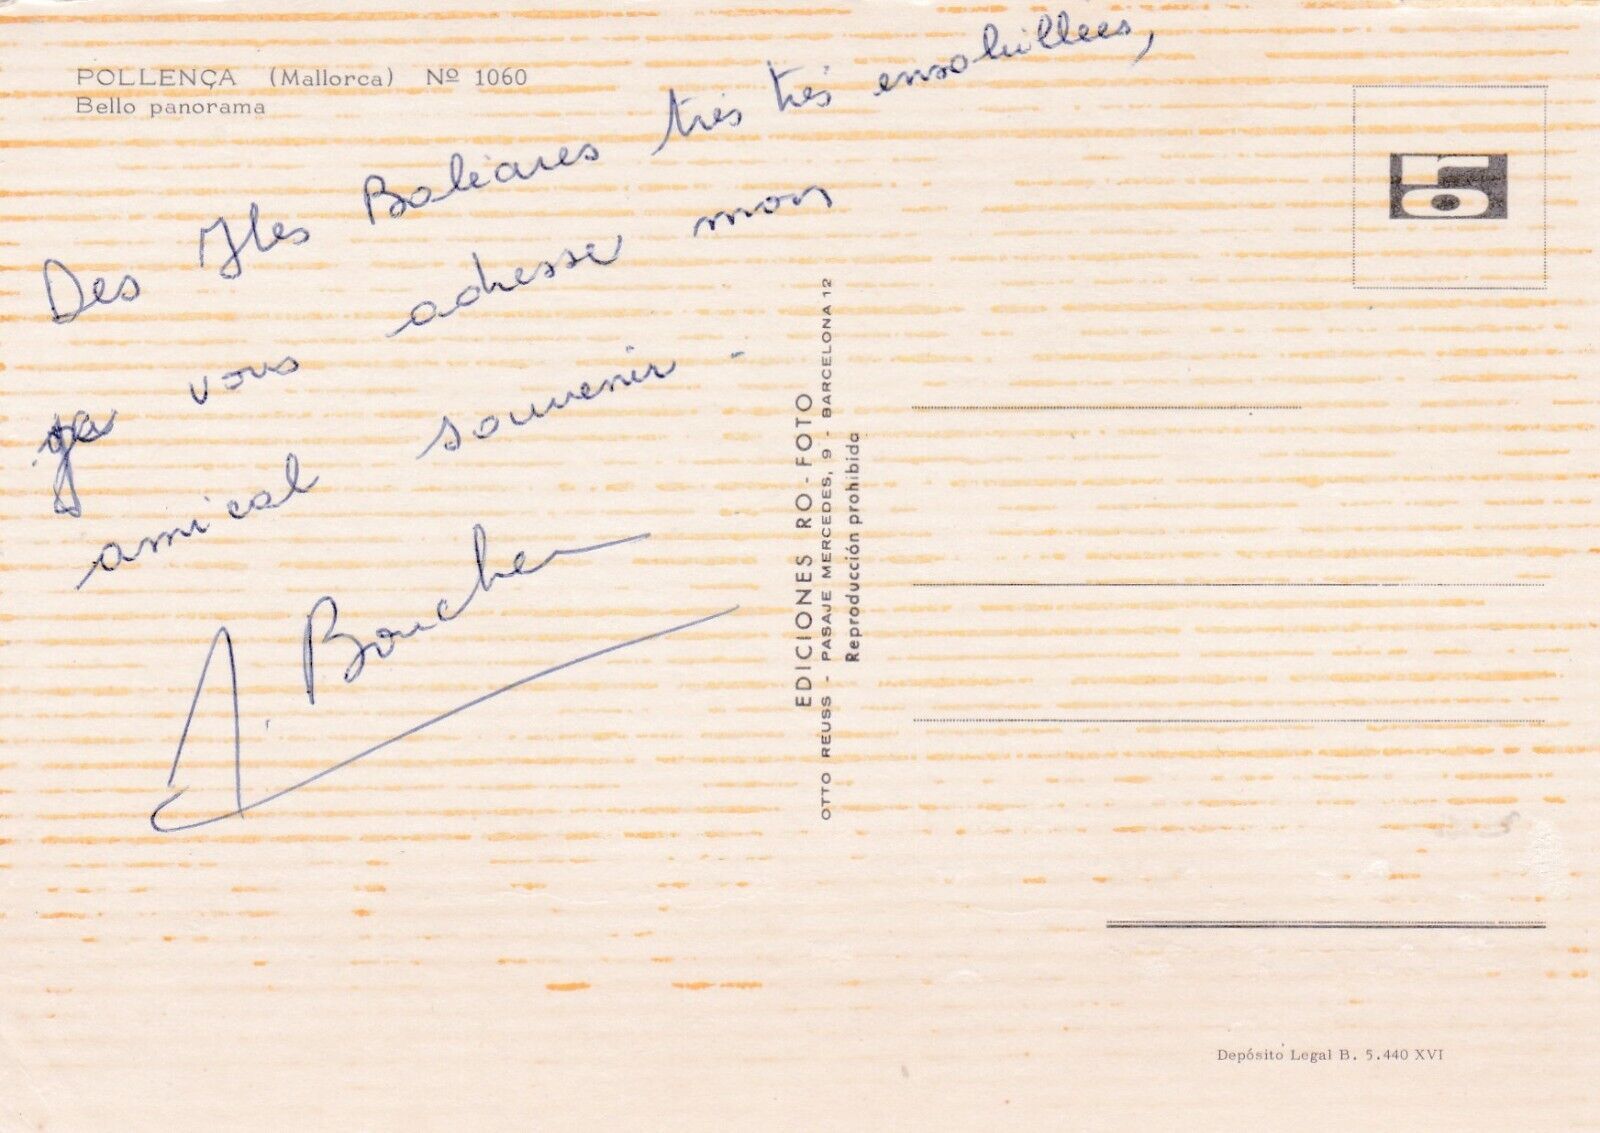 POLLENÇA (Mallorca) Nº 1060
Bello panorama
Des Iles Baléares très très ensoleillées,
je vous adresse mon
amical souvenir.
EDICIONES RO-FOTO
OTTO REUSS - PASAJE MERCEDES, 9 - BARCELONA 12
Reproducción prohibida
Depósito Legal B. 5.440 XVI